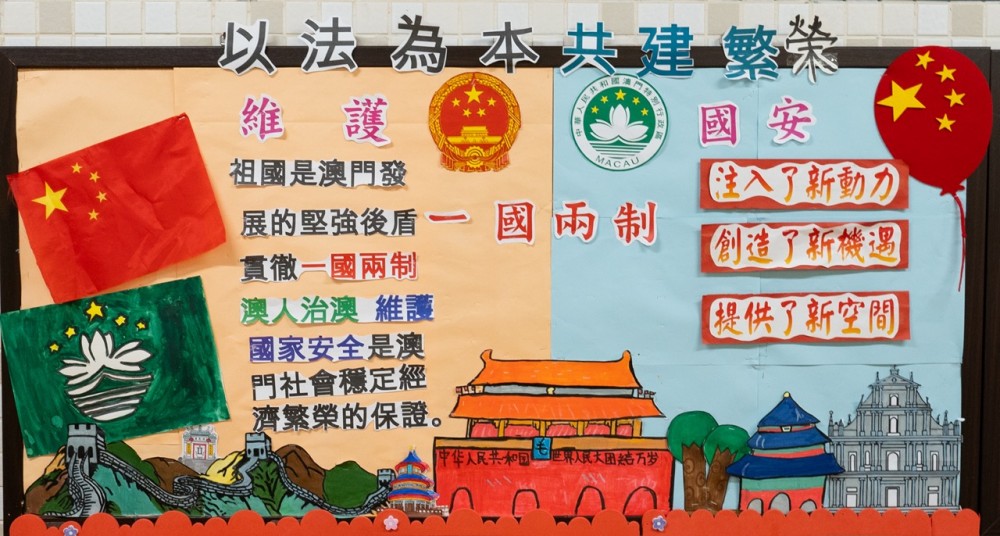 以法為本共建繁榮
維護
國安
祖國是澳門發
展的堅強後盾
一國兩制
貫徹一國兩制
澳人治澳 維護
國家安全是澳
門社會穩定經
濟繁榮的保證。
中華人民共和國澳門特別行政區
MACAU
注入了新動力
創造了新機遇
提供了新空間
中华人民共和国 毛 世界人民大团结万岁